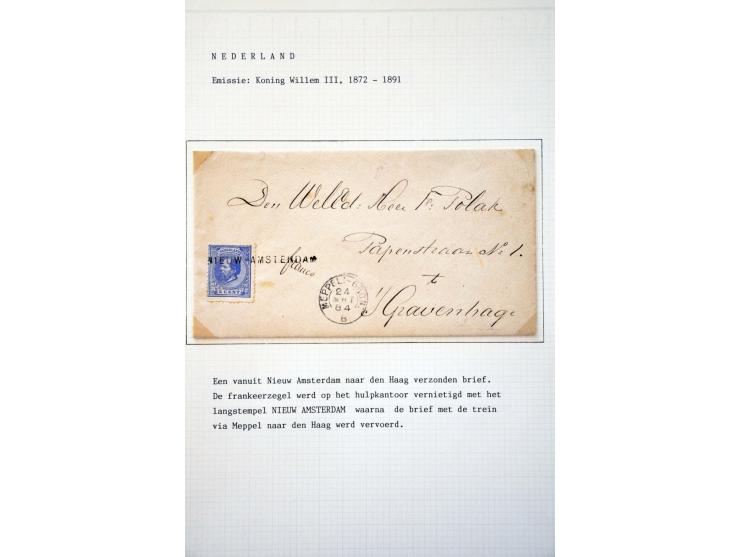 NEDERLAND
Emissie: Koning Willem III, 1872 - 1891
Den WelEd: Heer Fr: Polak
Papenstraat No 1.
NIEUW-AMSTERDAM
franco
t
5 CENT
MEPPEL-GRON
24
84
B
s/Gravenhage
Een vanuit Nieuw Amsterdam naar den Haag verzonden brief.
De frankeerzegel werd op het hulpkantoor vernietigd met het
langstempel NIEUW AMSTERDAM waarna de brief met de trein
via Meppel naar den Haag werd vervoerd.